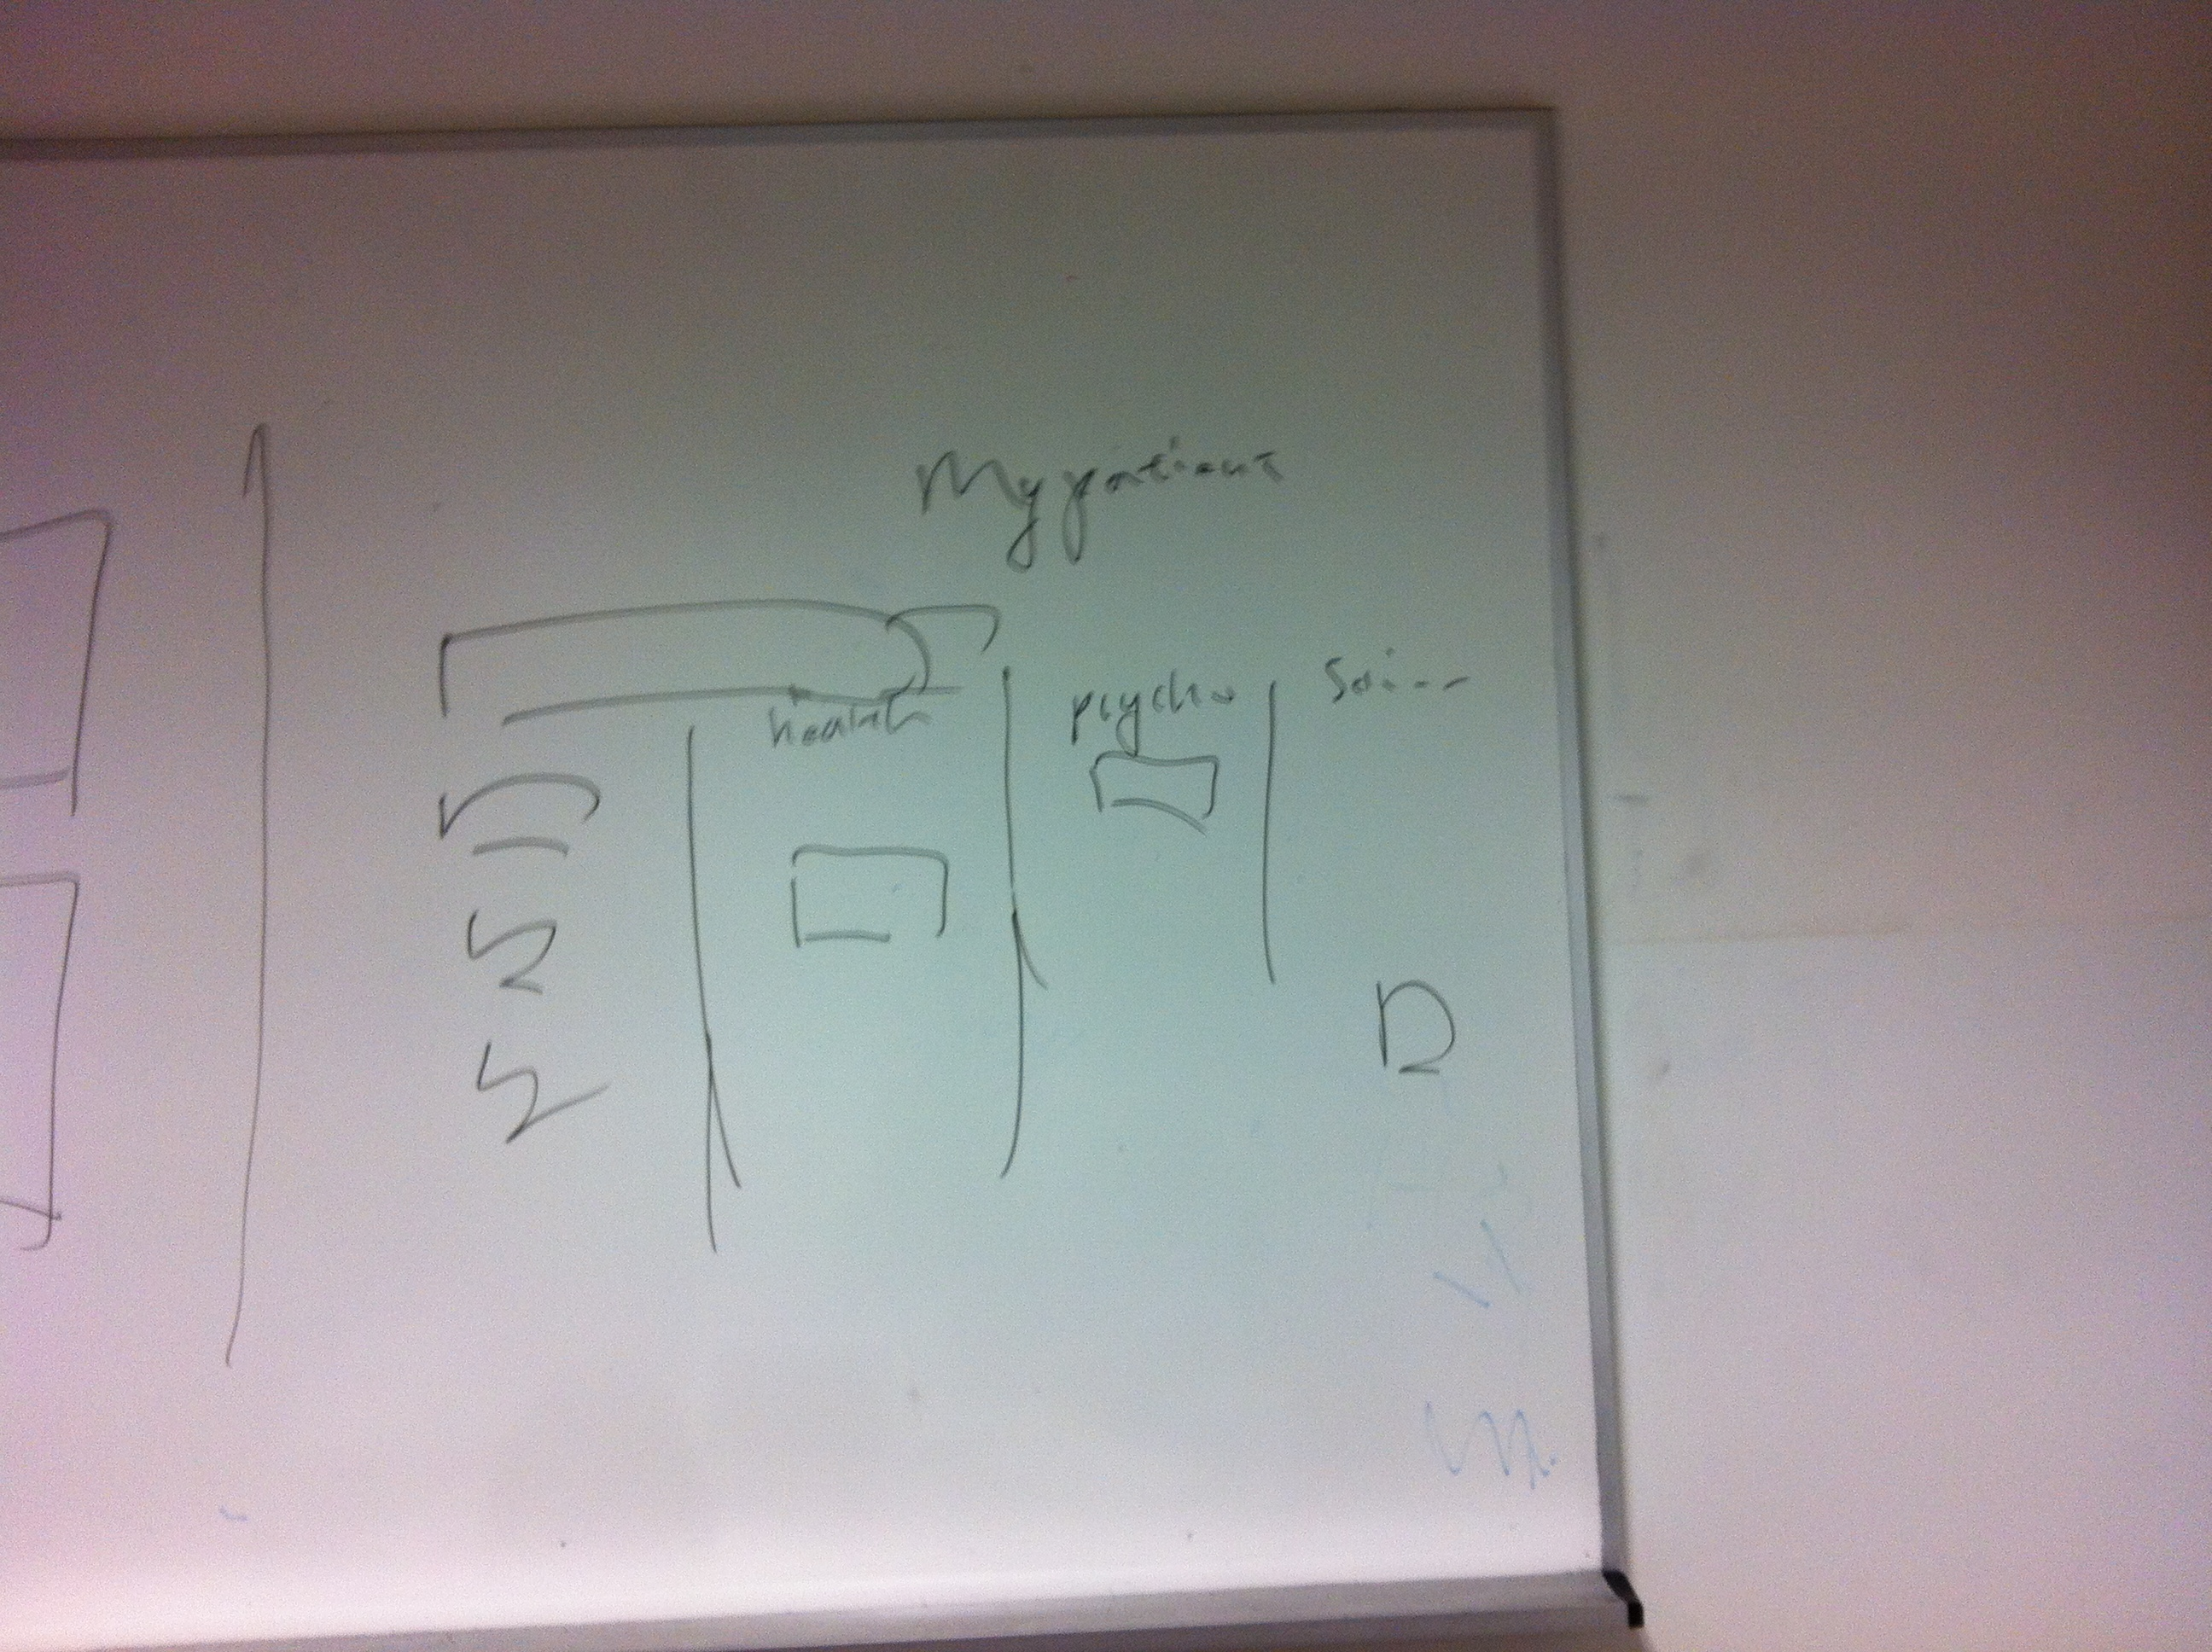 My patient
health psycho